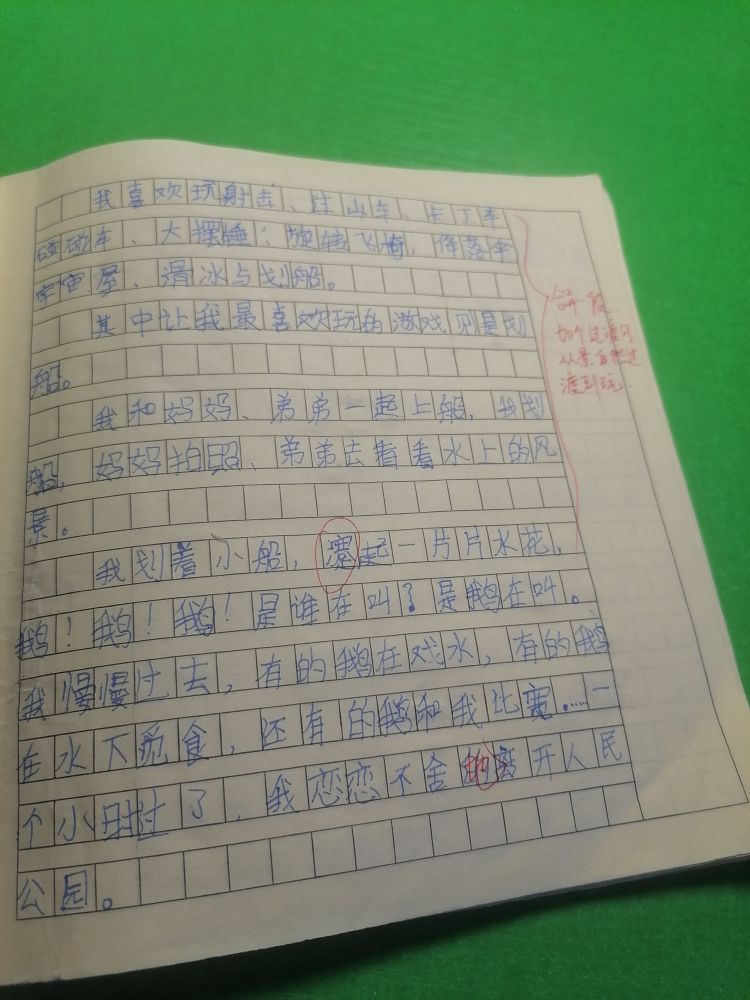 我喜欢玩射击、过山车、卡丁车
碰碰车、大摆锤、旋转飞椅，降落伞
宇宙屋、滑冰与划船。
其中让我最喜欢玩的游戏则是划
船。
我和妈妈、弟弟一起上船，我划
船，妈妈拍照、弟弟去看看水上的风
景。
我划着小船，起一片片水花，
鹅！鹅！鹅！是谁在叫？是鹅在叫。
我慢慢过去，有的鹅在戏水，有的鹅
在水下觅食，还有的鹅和我比赛……一
个小时过了，我恋恋不舍的离开人民
公园。
合一段
加个过渡句
从景自然过
渡到玩.